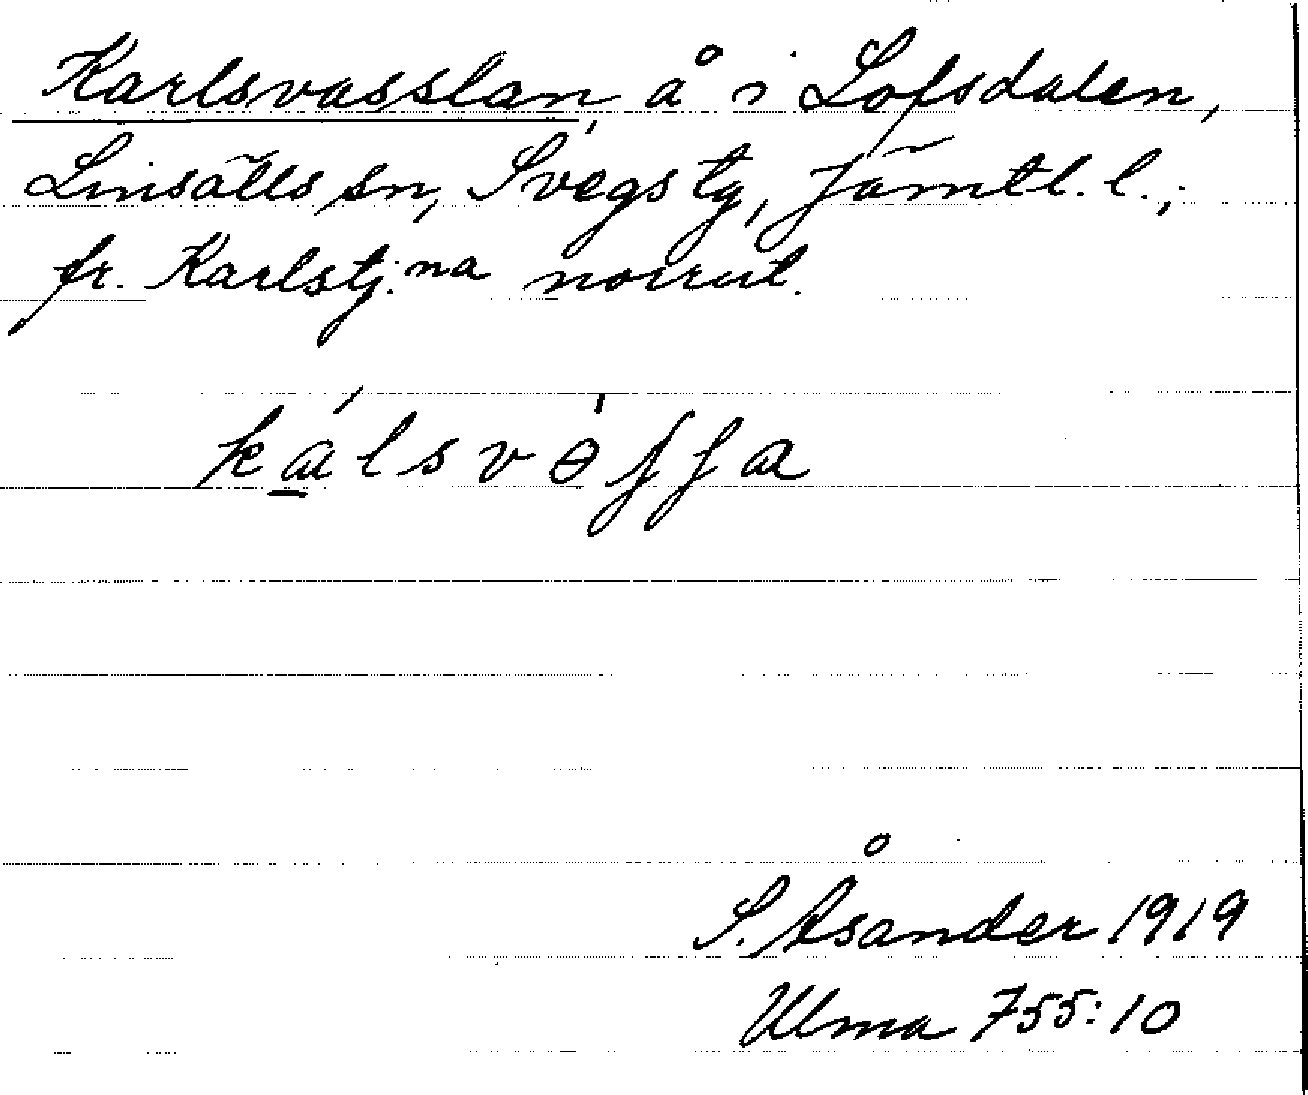 Karlsvasslan, å i Lofsdalen,
Linsälls sn, Svegs tg, Jämtl. l.;
fr. Karlstj:na norrut.
kálsvəʃʃa
S. Åsander 1919
Ulma 755:10